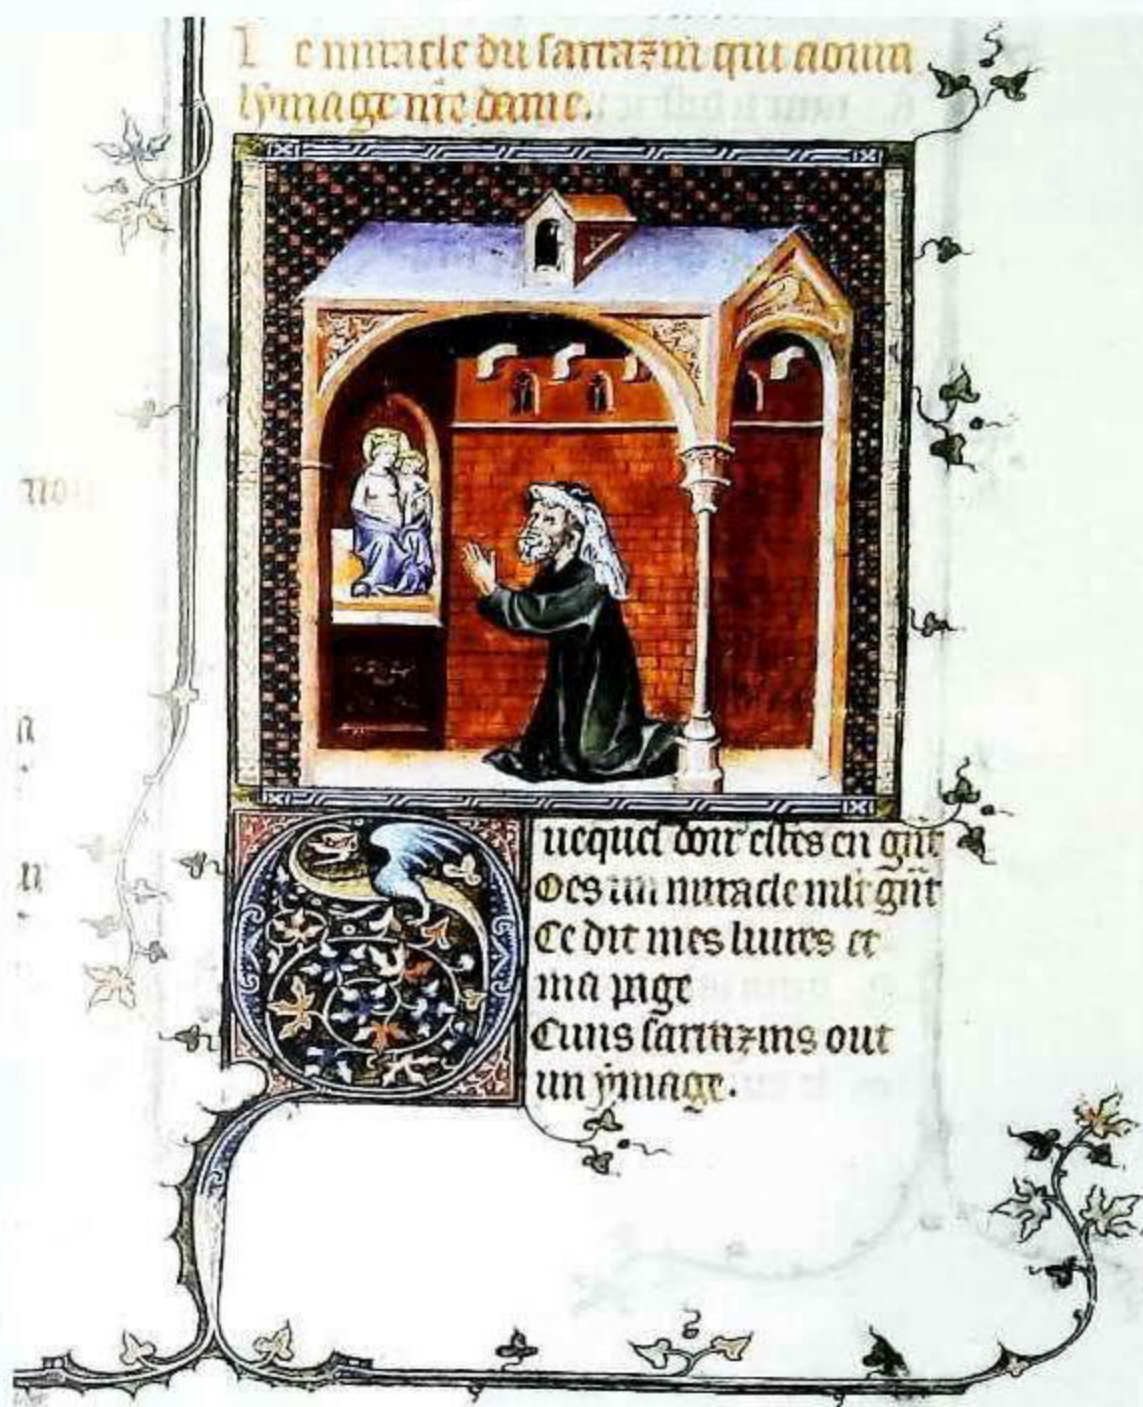 Le miracle du sarrazin qui aoura
lymage nre dame.
uequel doir estes en grnt
Oes un miracle mlt grnt
Ce dit mes liures et
ma page
Cuns sarrazins out
un ymage.